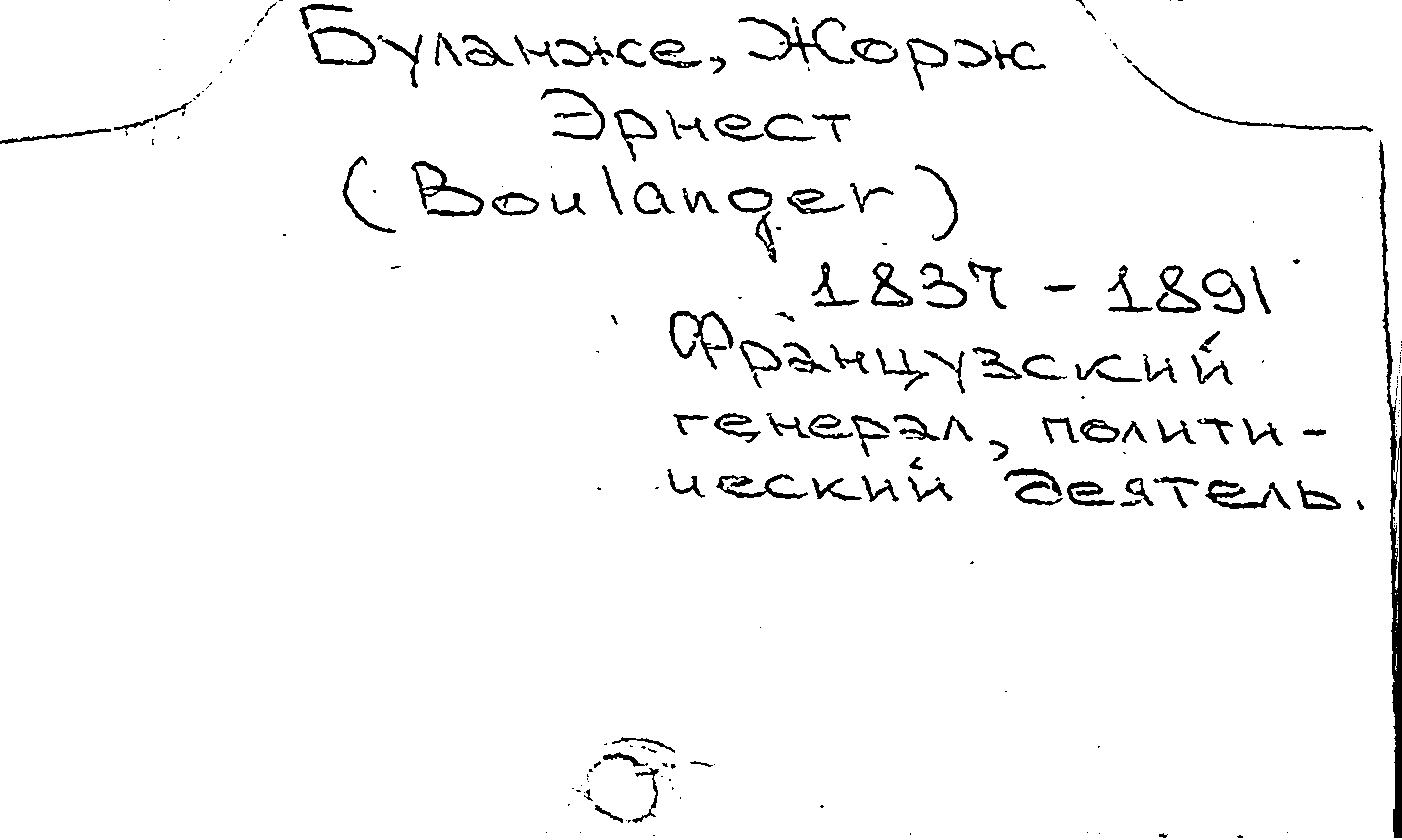 Буланже, Жорж
Эрнест
(Boulanger)
1837 - 1891
Французский
генерал, полити-
ческий деятель.